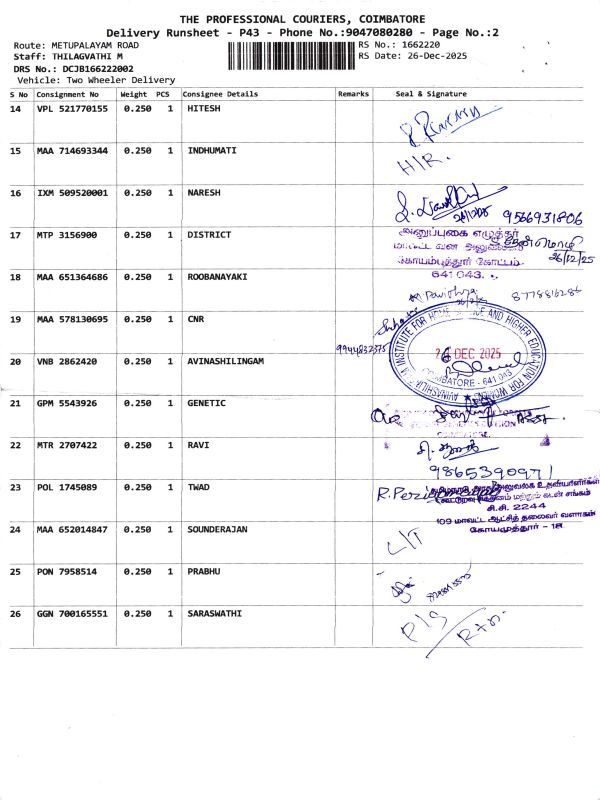 THE PROFESSIONAL COURIERS, COIMBATORE
Delivery Runsheet - P43 - Phone No.:9047080280 - Page No.:2
Route: METUPALAYAM ROAD
RS No.: 1662220
Staff: THILAGVATHI M
RS Date: 26-Dec-2025
DRS No.: DCJB166222002
Vehicle: Two Wheeler Delivery
S No Consignment No Weight PCS Consignee Details Remarks Seal & Signature
14 VPL 521770155 0.250 1 HITESH
15 MAA 714693344 0.250 1 INDHUMATI
H/R.
16 IXM 509520001 0.250 1 NARESH
9566931806
17 MTP 3156900 0.250 1 DISTRICT
அனுப்புகை எழுத்தர்
மாவட்ட வன அலுவலகம்
26/12/25
கோயம்புத்தூர் கோட்டம்
641 043.
18 MAA 651364686 0.250 1 ROOBANAYAKI
8778816286
19 MAA 578130695 0.250 1 CNR
9944832375
INSTITUTE FOR HOME SCIENCE AND HIGHER EDUCATION FOR WOMEN
26 DEC 2025
COIMBATORE - 641 043
20 VNB 2862420 0.250 1 AVINASHILINGAM
21 GPM 5543926 0.250 1 GENETIC
22 MTR 2707422 0.250 1 RAVI
9865390971
23 POL 1745089 0.250 1 TWAD
சி.சி. 2244
109 மாவட்ட ஆட்சித் தலைவர் வளாகம்
கோயமுத்தூர் - 18
24 MAA 652014847 0.250 1 SOUNDERAJAN
25 PON 7958514 0.250 1 PRABHU
26 GGN 700165551 0.250 1 SARASWATHI